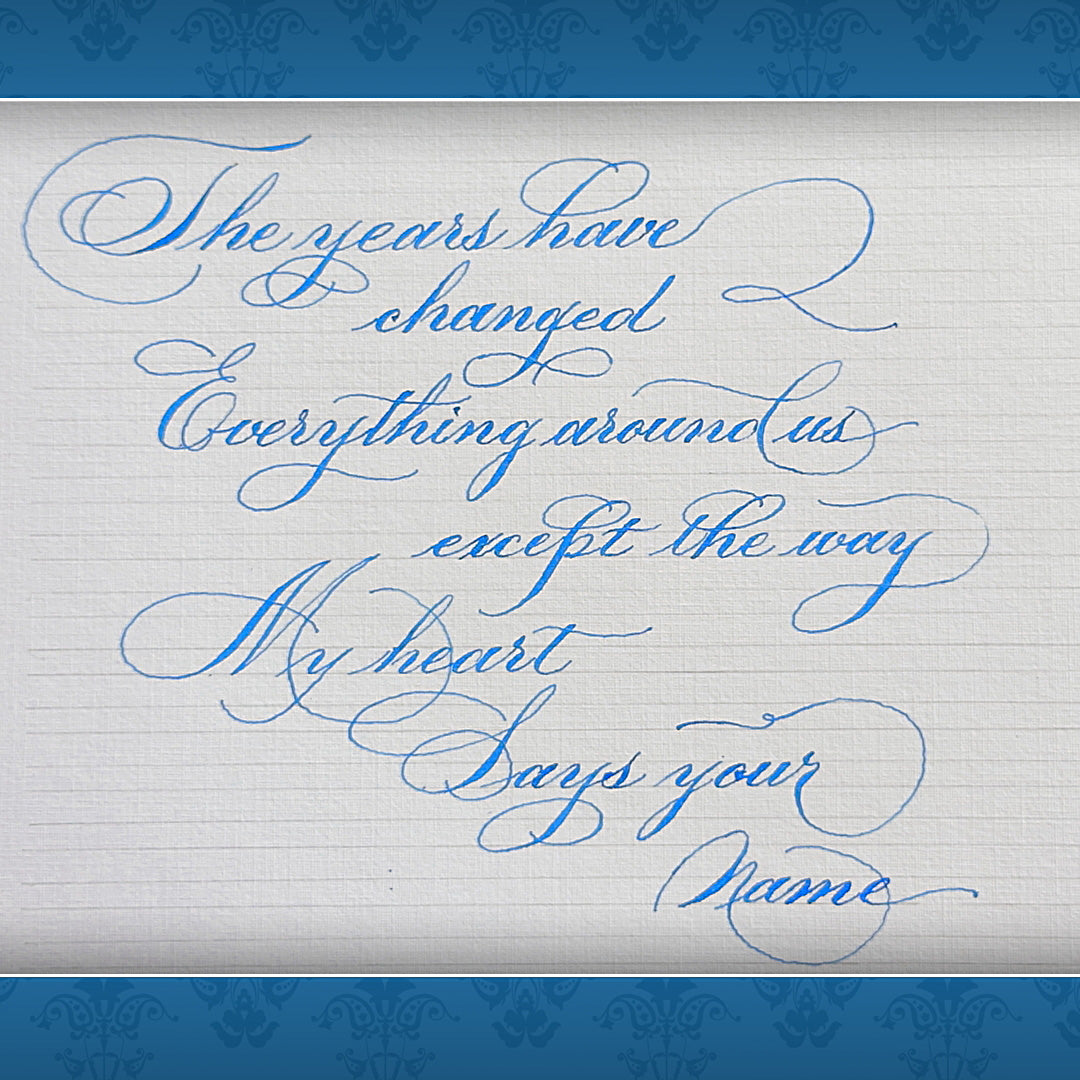 The years have
changed
Everything around us
except the way
My heart
Says your
Name